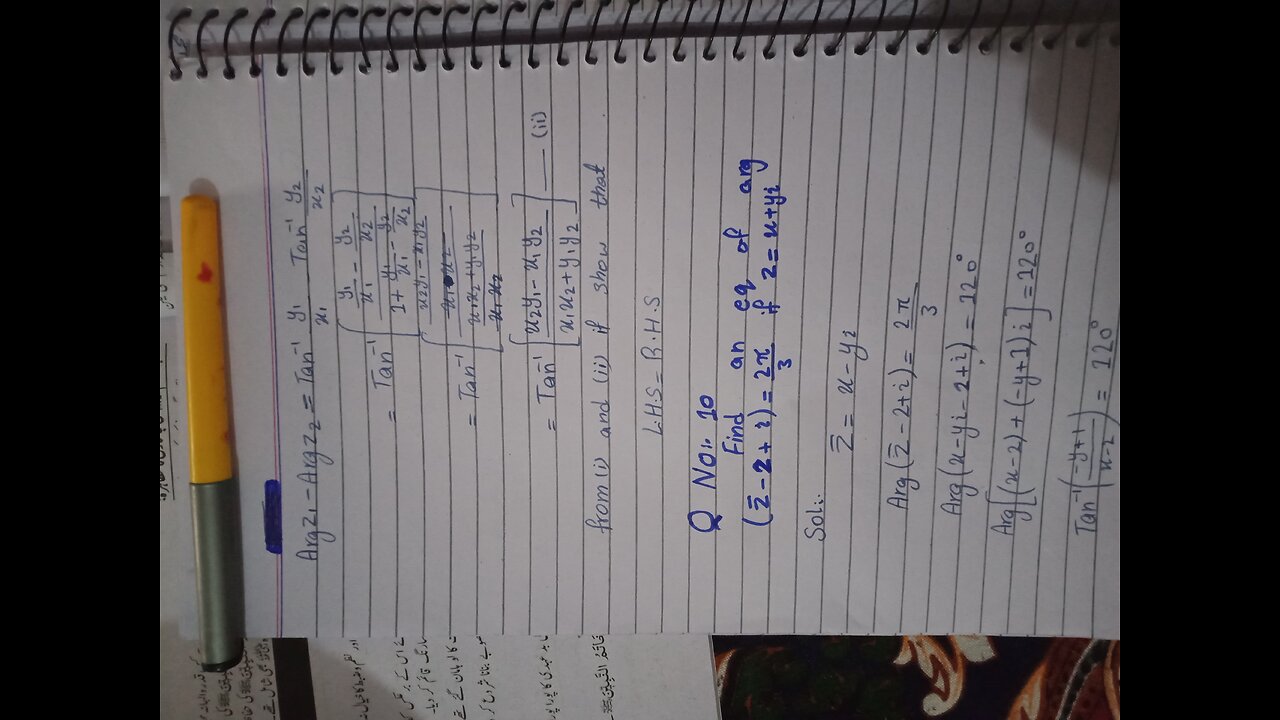 Arg z₁ - Arg z₂ = Tan⁻¹ y₁/x₁ Tan⁻¹ y₂/x₂
= Tan⁻¹ [ (y₁/x₁ - y₂/x₂) / (1 + y₁/x₁ - y₂/x₂) ]
= Tan⁻¹ [ ((x₂y₁ - x₁y₂)/(x₁x₂)) / ((x₁x₂ + y₁y₂)/(x₁x₂)) ]
= Tan⁻¹ [ (x₂y₁ - x₁y₂) / (x₁x₂ + y₁y₂) ] — (ii)
from (i) and (ii) if show that
L.H.S = R.H.S
Q No:. 10
Find an eq of arg
(z̄ - 2 + i) = 2π/3 if z = x + yi
Sol:.
z̄ = x - yi
Arg (z̄ - 2 + i) = 2π/3
Arg (x - yi - 2 + i) = 120°
Arg [(x - 2) + (-y + 1) i] = 120°
Tan⁻¹ ((-y + 1)/(x - 2)) = 120°